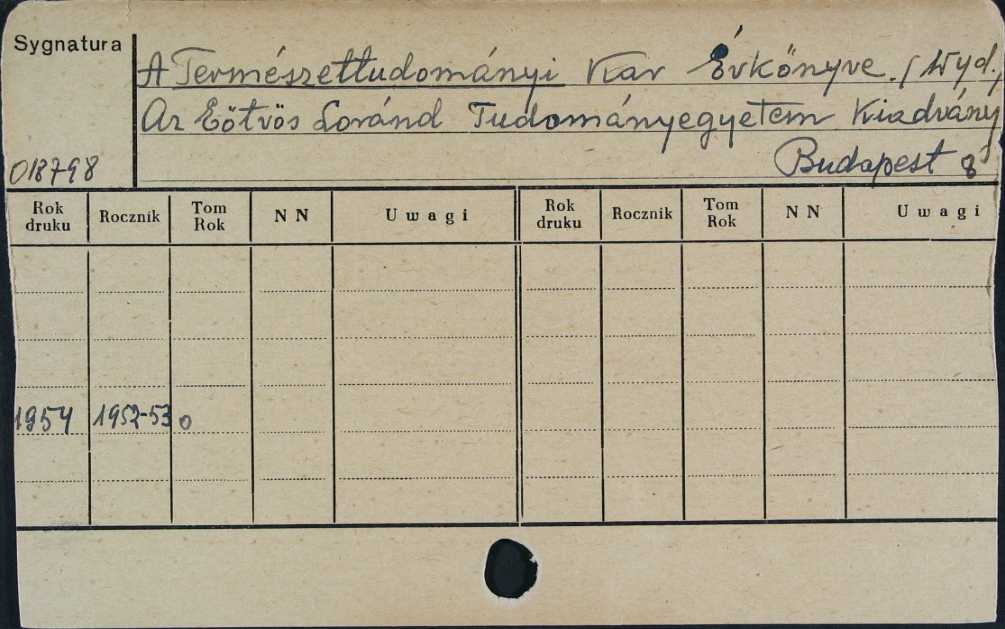 Sygnatura
A Természettudományi Kar Évkönyve. / Wyd.
Az Eötvös Loránd Tudományegyetem Kiadvány
Budapest 8°
018798
Rok druku Rocznik Tom Rok NN Uwagi Rok druku Rocznik Tom Rok NN Uwagi
1954 1952-53 o